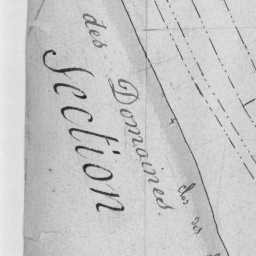 des Domaines.
Section